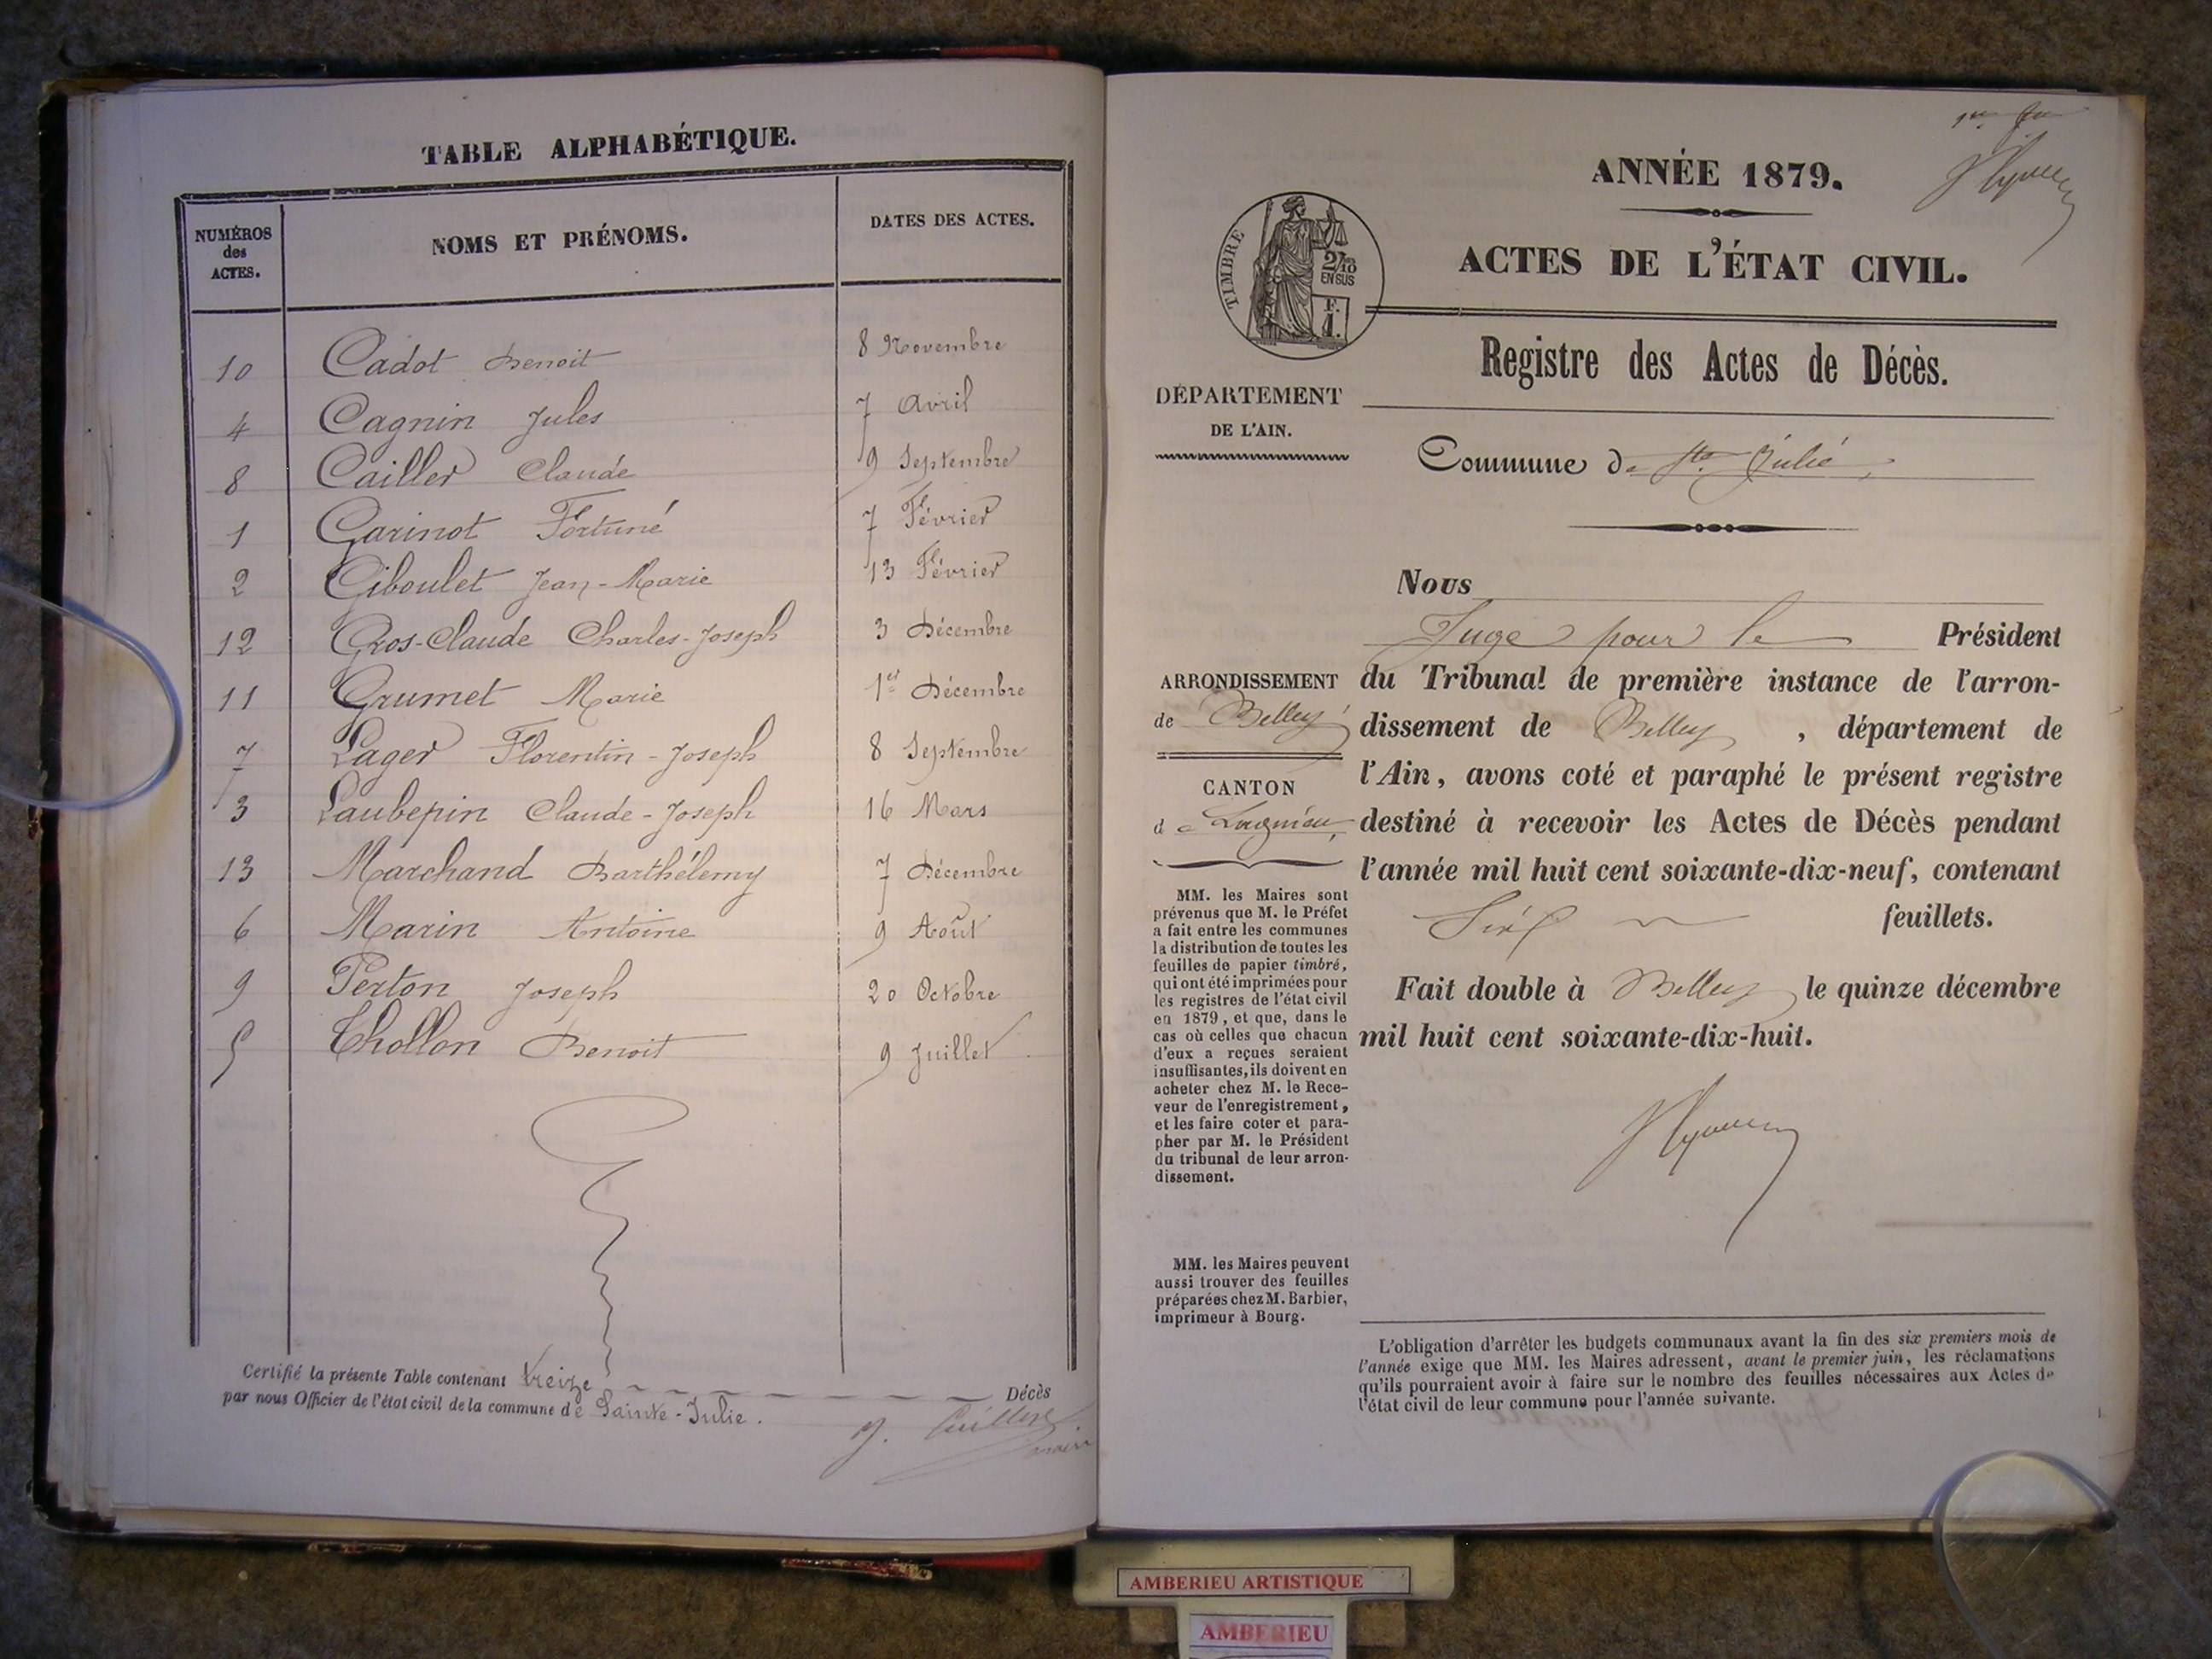 TABLE ALPHABÉTIQUE.
NUMÉROS
des
ACTES.
NOMS ET PRÉNOMS.
DATES DES ACTES.
10 Cadot Benoit 8 Novembre
4 Cagnin Jules 7 Avril
8 Cailler Claude 9 Septembre
1 Garinot Fortuné 7 Février
2 Giboulet Jean-Marie 13 Février
12 Gros-Claude Charles-Joseph 3 Décembre
11 Grumet Marie 1er Décembre
7 Lager Florentin-Joseph 8 Septembre
3 Laubepin Claude-Joseph 16 Mars
13 Marchand Barthélemy 7 Décembre
6 Marin Antoine 9 Août
9 Perton Joseph 20 Octobre
5 Chollon Benoit 9 Juillet
Certifié la présente Table contenant treize Décès
par nous Officier de l'état civil de la commune de Sainte-Julie.
maire
ANNÉE 1879.
ACTES DE L'ÉTAT CIVIL.
TIMBRE
2/10
EN SUS
F.
1.
Registre des Actes de Décès.
DÉPARTEMENT
DE L'AIN.
Commune de Ste Julie
Nous
Juge pour le Président
du Tribunal de première instance de l'arron-
dissement de Belley, département de
l'Ain, avons coté et paraphé le présent registre
destiné à recevoir les Actes de Décès pendant
l'année mil huit cent soixante-dix-neuf, contenant
Six feuillets.
Fait double à Belley le quinze décembre
mil huit cent soixante-dix-huit.
ARRONDISSEMENT
de Belley
CANTON
de Lagnieu
MM. les Maires sont
prévenus que M. le Préfet
a fait entre les communes
la distribution de toutes les
feuilles de papier timbré,
qui ont été imprimées pour
les registres de l'état civil
en 1879, et que, dans le
cas où celles que chacun
d'eux a reçues seraient
insuffisantes, ils doivent en
acheter chez M. le Rece-
veur de l'enregistrement,
et les faire coter et para-
pher par M. le Président
du tribunal de leur arron-
dissement.
MM. les Maires peuvent
aussi trouver des feuilles
préparées chez M. Barbier,
imprimeur à Bourg.
L'obligation d'arrêter les budgets communaux avant la fin des six premiers mois de
l'année exige que MM. les Maires adressent, avant le premier juin, les réclamations
qu'ils pourraient avoir à faire sur le nombre des feuilles nécessaires aux Actes de
l'état civil de leur commune pour l'année suivante.
AMBERIEU ARTISTIQUE
AMBERIEU